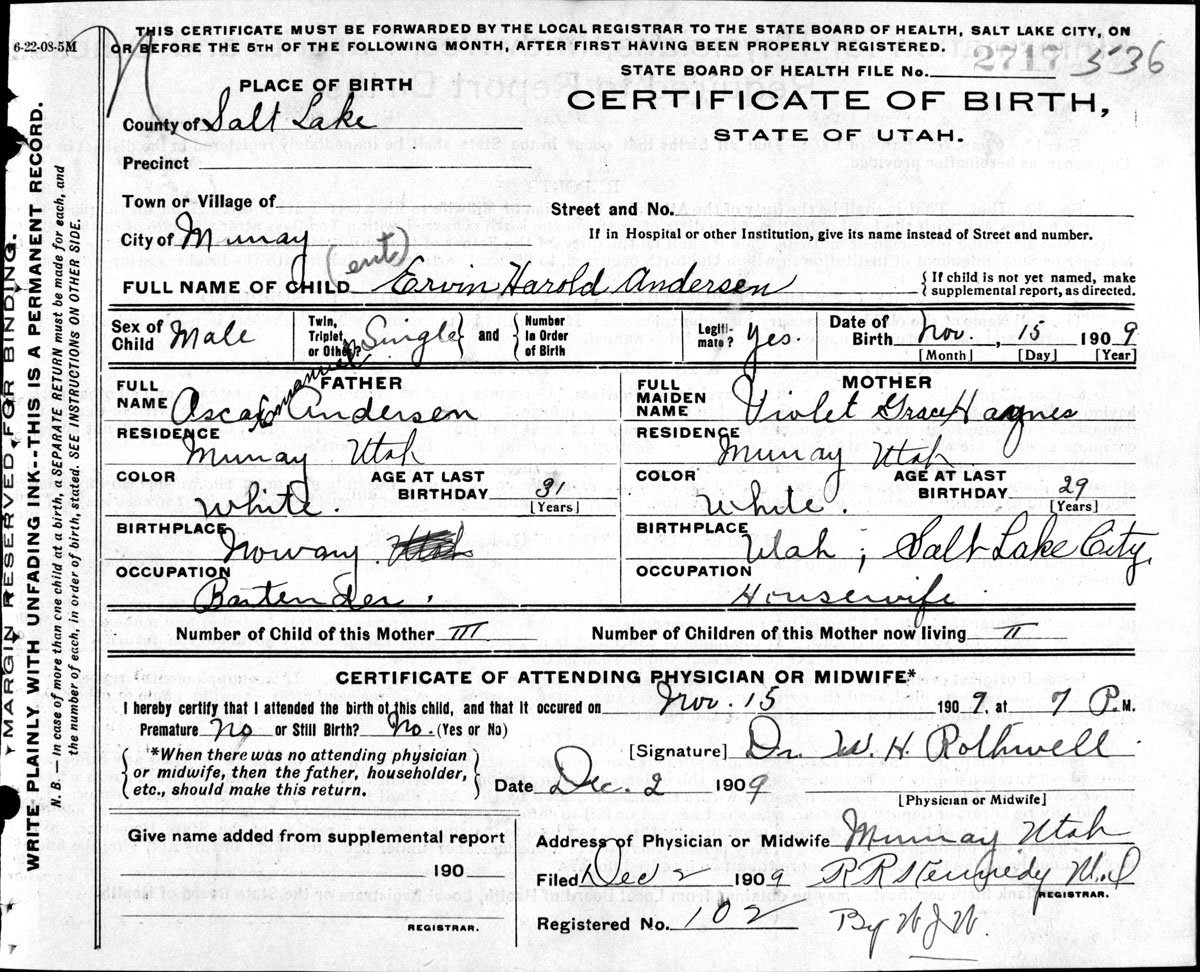 THIS CERTIFICATE MUST BE FORWARDED BY THE LOCAL REGISTRAR TO THE STATE BOARD OF HEALTH, SALT LAKE CITY, ON
6-22-08-5M
OR BEFORE THE 5TH OF THE FOLLOWING MONTH, AFTER FIRST HAVING BEEN PROPERLY REGISTERED.
STATE BOARD OF HEALTH FILE No. 2717 536
PLACE OF BIRTH
CERTIFICATE OF BIRTH,
County of Salt Lake
STATE OF UTAH.
Precinct
Town or Village of
Street and No.
City of Murray
If in Hospital or other Institution, give its name instead of Street and number.
(ent)
FULL NAME OF CHILD Ervin Harold Andersen
{ If child is not yet named, make
supplemental report, as directed.
Sex of Child Male
Twin, Triplet or Other? Single } and { Number In Order of Birth
Legitimate? Yes.
Date of Birth Nov. , 15 1909
[Month] [Day] [Year]
FATHER
FULL NAME Ascar Emanuel Andersen
RESIDENCE
Murray Utah
COLOR White.
AGE AT LAST BIRTHDAY 31
[Years]
BIRTHPLACE
Norway Utah
OCCUPATION
Bartender.
MOTHER
FULL MAIDEN NAME Violet Grace Haynes
RESIDENCE
Murray Utah
COLOR White.
AGE AT LAST BIRTHDAY 29
[Years]
BIRTHPLACE
Utah, Salt Lake City,
OCCUPATION
Housewife
Number of Child of this Mother III Number of Children of this Mother now living II
CERTIFICATE OF ATTENDING PHYSICIAN OR MIDWIFE*
I hereby certify that I attended the birth of this child, and that it occured on Nov. 15 1909, at 7 P.M.
Premature No or Still Birth? No. (Yes or No)
{ *When there was no attending physician
or midwife, then the father, householder,
etc., should make this return. }
[Signature] Dr. W. H. Rothwell
Date Dec. 2 1909
[Physician or Midwife]
Give name added from supplemental report
190
REGISTRAR.
Address of Physician or Midwife Murray Utah
Filed Dec 2 1909 R R Kennedy M.d
REGISTRAR.
Registered No. 102 By W J W.
MARGIN RESERVED FOR BINDING.
WRITE PLAINLY WITH UNFADING INK--THIS IS A PERMANENT RECORD.
N. B. In case of more than one child at a birth, a SEPARATE RETURN must be made for each, and
the number of each, in order of birth, stated. SEE INSTRUCTIONS ON OTHER SIDE.